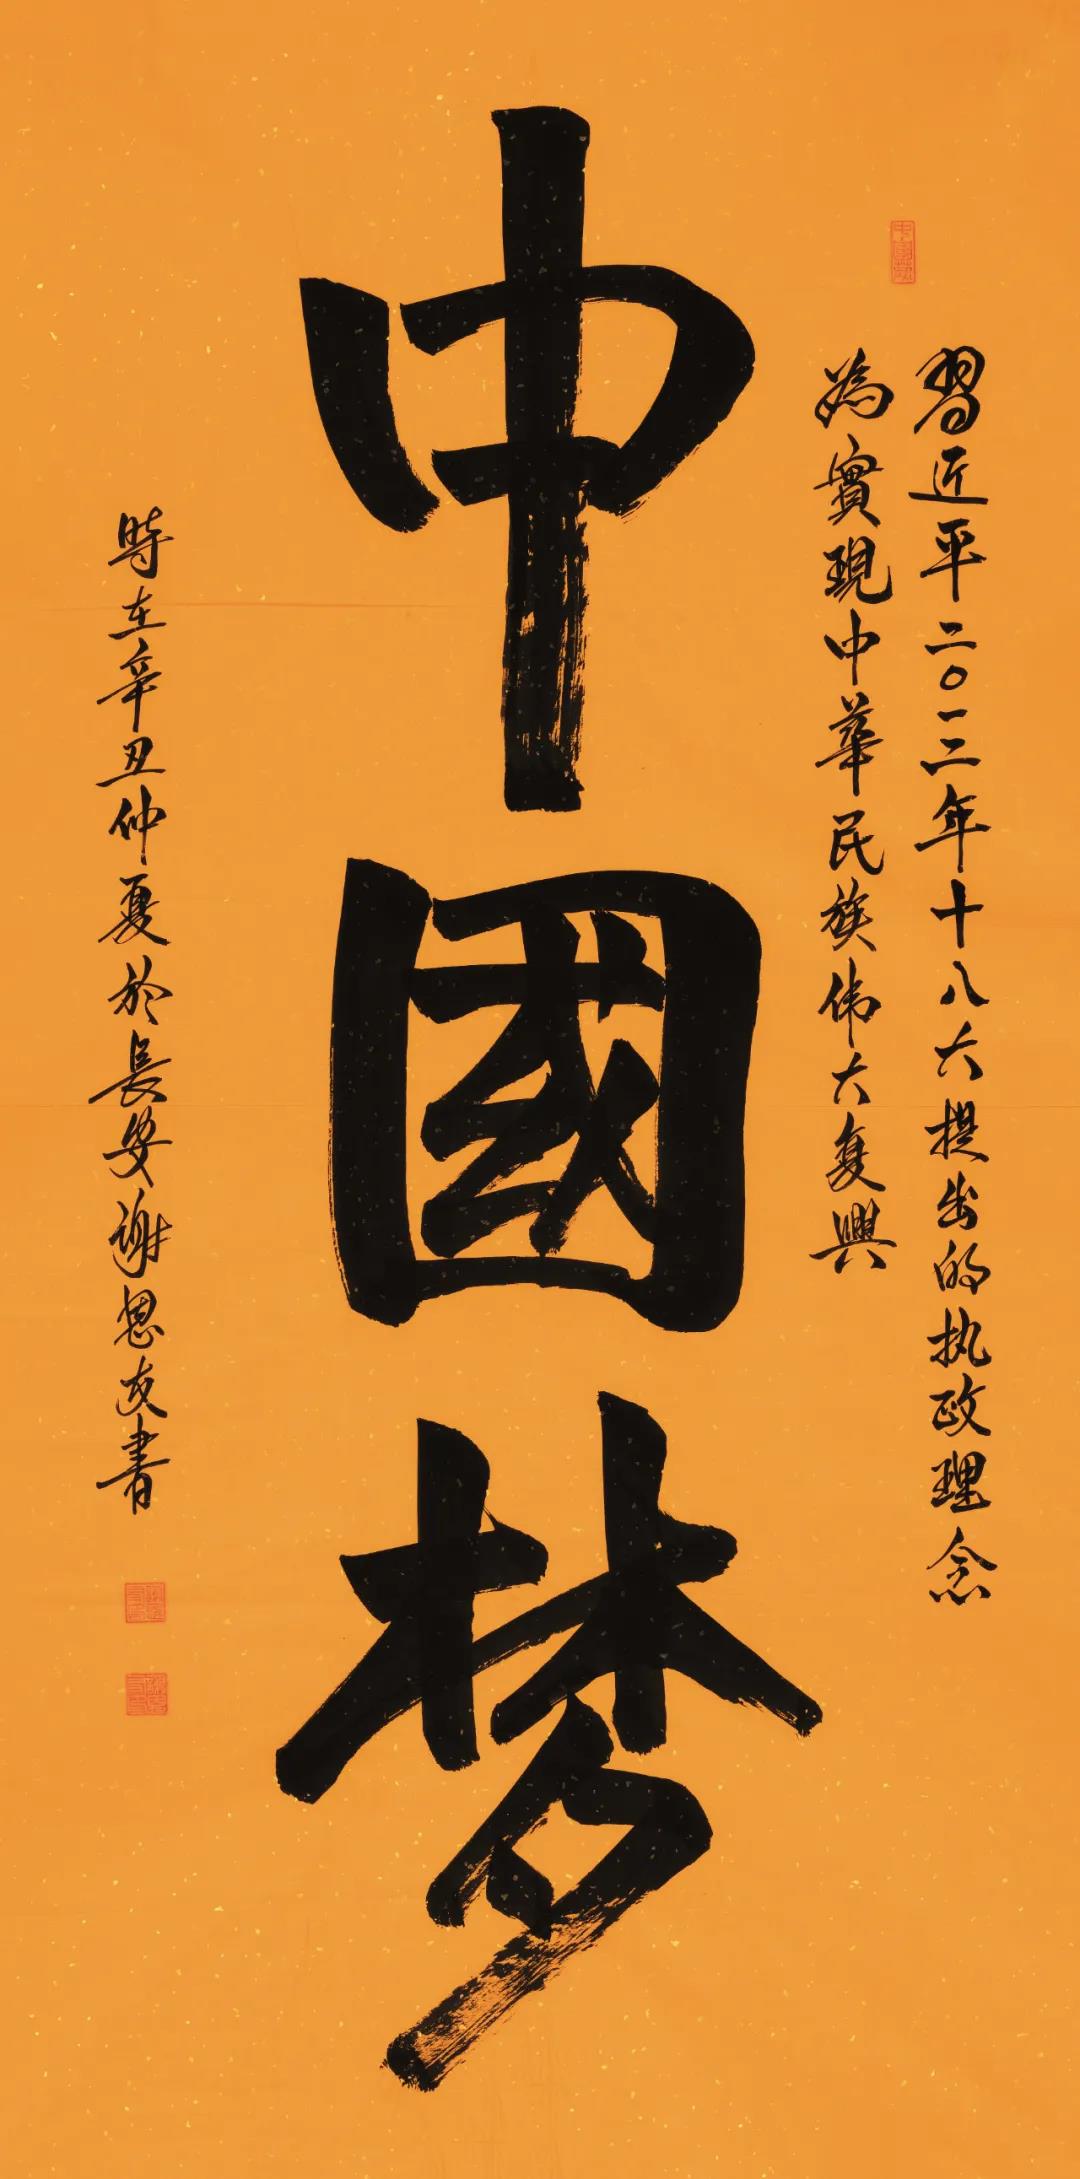 習近平二〇一二年十八大提出的执政理念
為實現中華民族伟大复興
中國梦
時在辛丑仲夏於長安謝恩友書